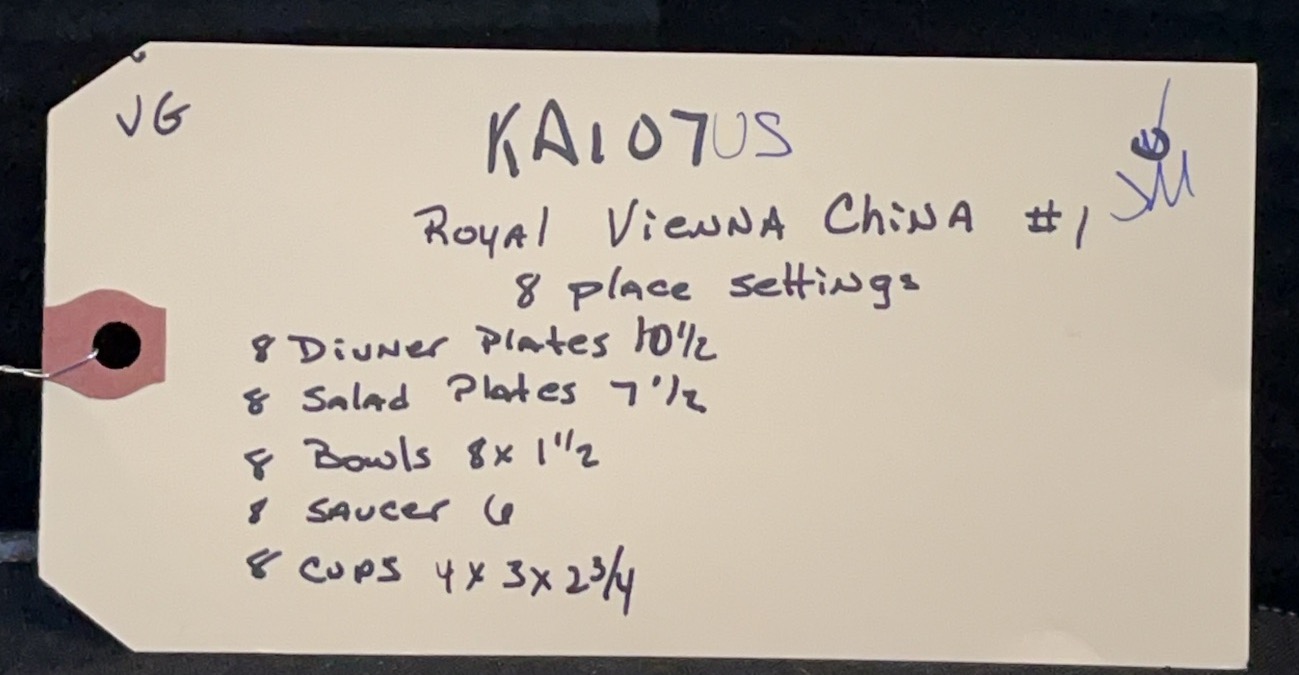 VG
KA107US
Royal Vienna China #1
8 place settings
8 Dinner Plates 10 1/2
8 Salad Plates 7 1/2
8 Bowls 8 x 1 1/2
8 Saucer 6
8 Cups 4 x 3 x 2 3/4